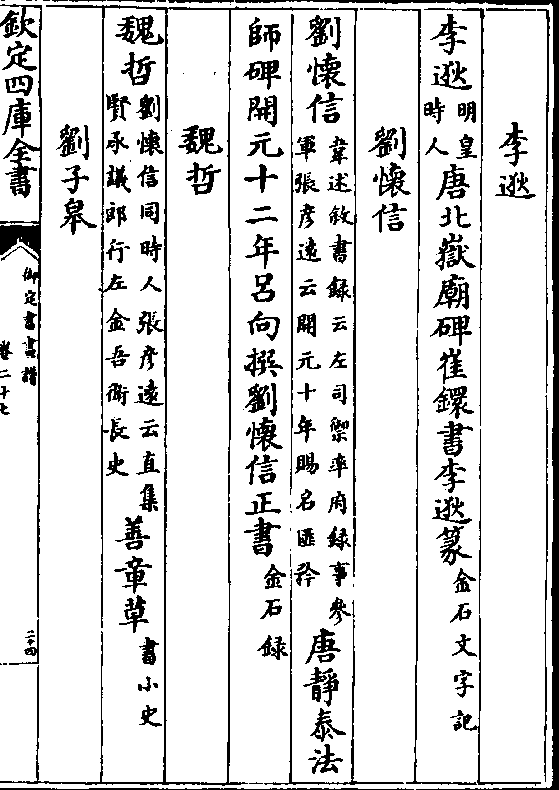 李逖
李逖明皇時人唐北嶽廟碑崔鐶書李逖篆金石文字記
劉懷信
劉懷信韋述敘書録云左司禦率府録事參軍張彥遠云開元十年賜名匪矜唐靜泰法
師碑開元十二年呂向撰劉懷信正書金石録
魏哲
魏哲劉懷信同時人張彥遠云直集賢承議郎行左金吾衛長史善章草書小史
劉子皐
欽定四庫全書
御定書畫譜
卷二十七
二十四